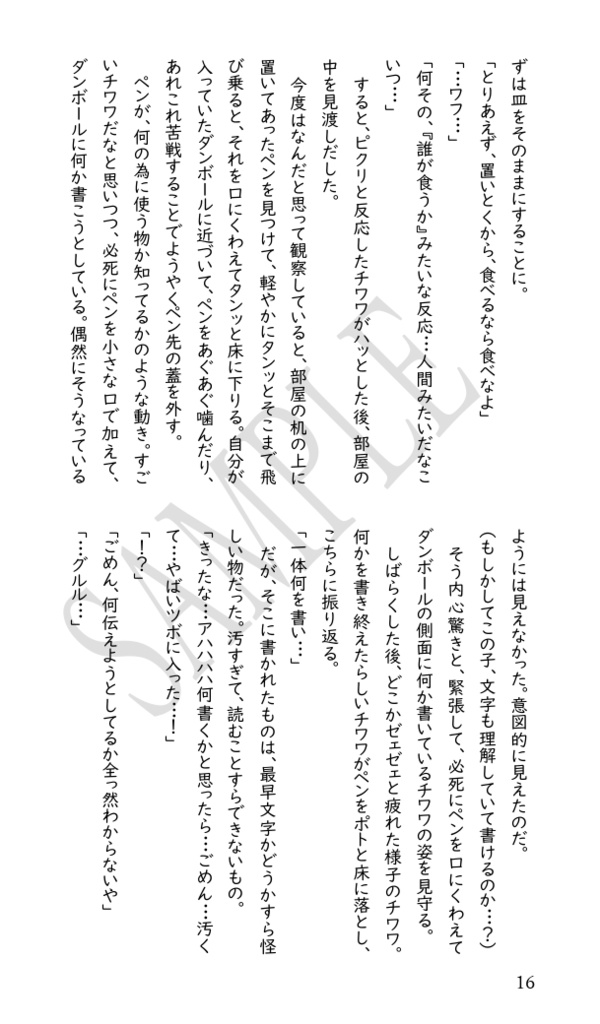 ずは皿をそのままにすることに。
「とりあえず、置いとくから、食べるなら食べなよ」
「…ワフ…」
「何その、『誰が食うか』みたいな反応…人間みたいだなこ
いつ…」
すると、ピクリと反応したチワワがハッとした後、部屋の
中を見渡しだした。
今度はなんだと思って観察していると、部屋の机の上に
置いてあったペンを見つけて、軽やかにタンッとそこまで飛
び乗ると、それを口にくわえてタンッと床に下りる。自分が
入っていたダンボールに近づいて、ペンをあぐあぐ噛んだり、
あれこれ苦戦することでようやくペン先の蓋を外す。
ペンが、何の為に使う物か知ってるかのような動き。すご
いチワワだなと思いつつ、必死にペンを小さな口で加えて、
ダンボールに何か書こうとしている。偶然にそうなっている
ようには見えなかった。意図的に見えたのだ。
(もしかしてこの子、文字も理解していて書けるのか…?)
そう内心驚きと、緊張して、必死にペンを口にくわえて
ダンボールの側面に何か書いているチワワの姿を見守る。
しばらくした後、どこかゼェゼェと疲れた様子のチワワ。
何かを書き終えたらしいチワワがペンをポトと床に落とし、
こちらに振り返る。
「一体何を書い…」
だが、そこに書かれたものは、最早文字かどうかすら怪
しい物だった。汚すぎて、読むことすらできないもの。
「きったな…アハハハハ何書くかと思ったら…ごめん…汚く
て…やばいツボに入った…!」
「!?」
「ごめん、何伝えようとしてるか全っ然わからないや」
「…グルル…」
16
SAMPLE